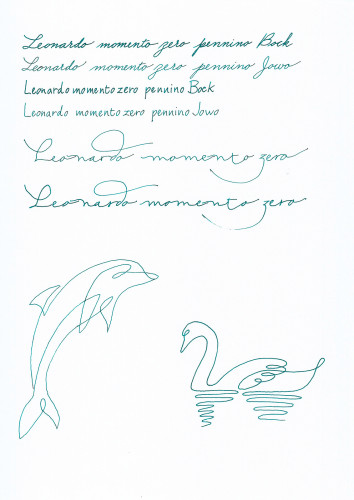 Leonardo momento zero pennino Bock
Leonardo momento zero pennino Jowo
Leonardo momento zero pennino Bock
Leonardo momento zero pennino Jowo
Leonardo momento zero
Leonardo momento zero